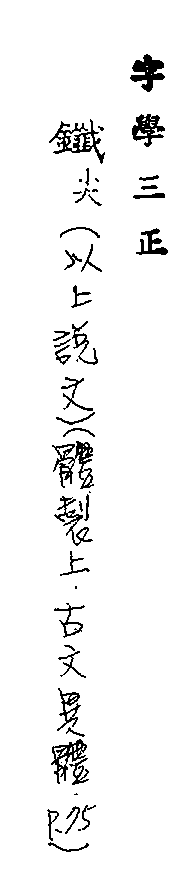 字學三正
鑯尖(以上說文)(體製上.古文異體.P.75)